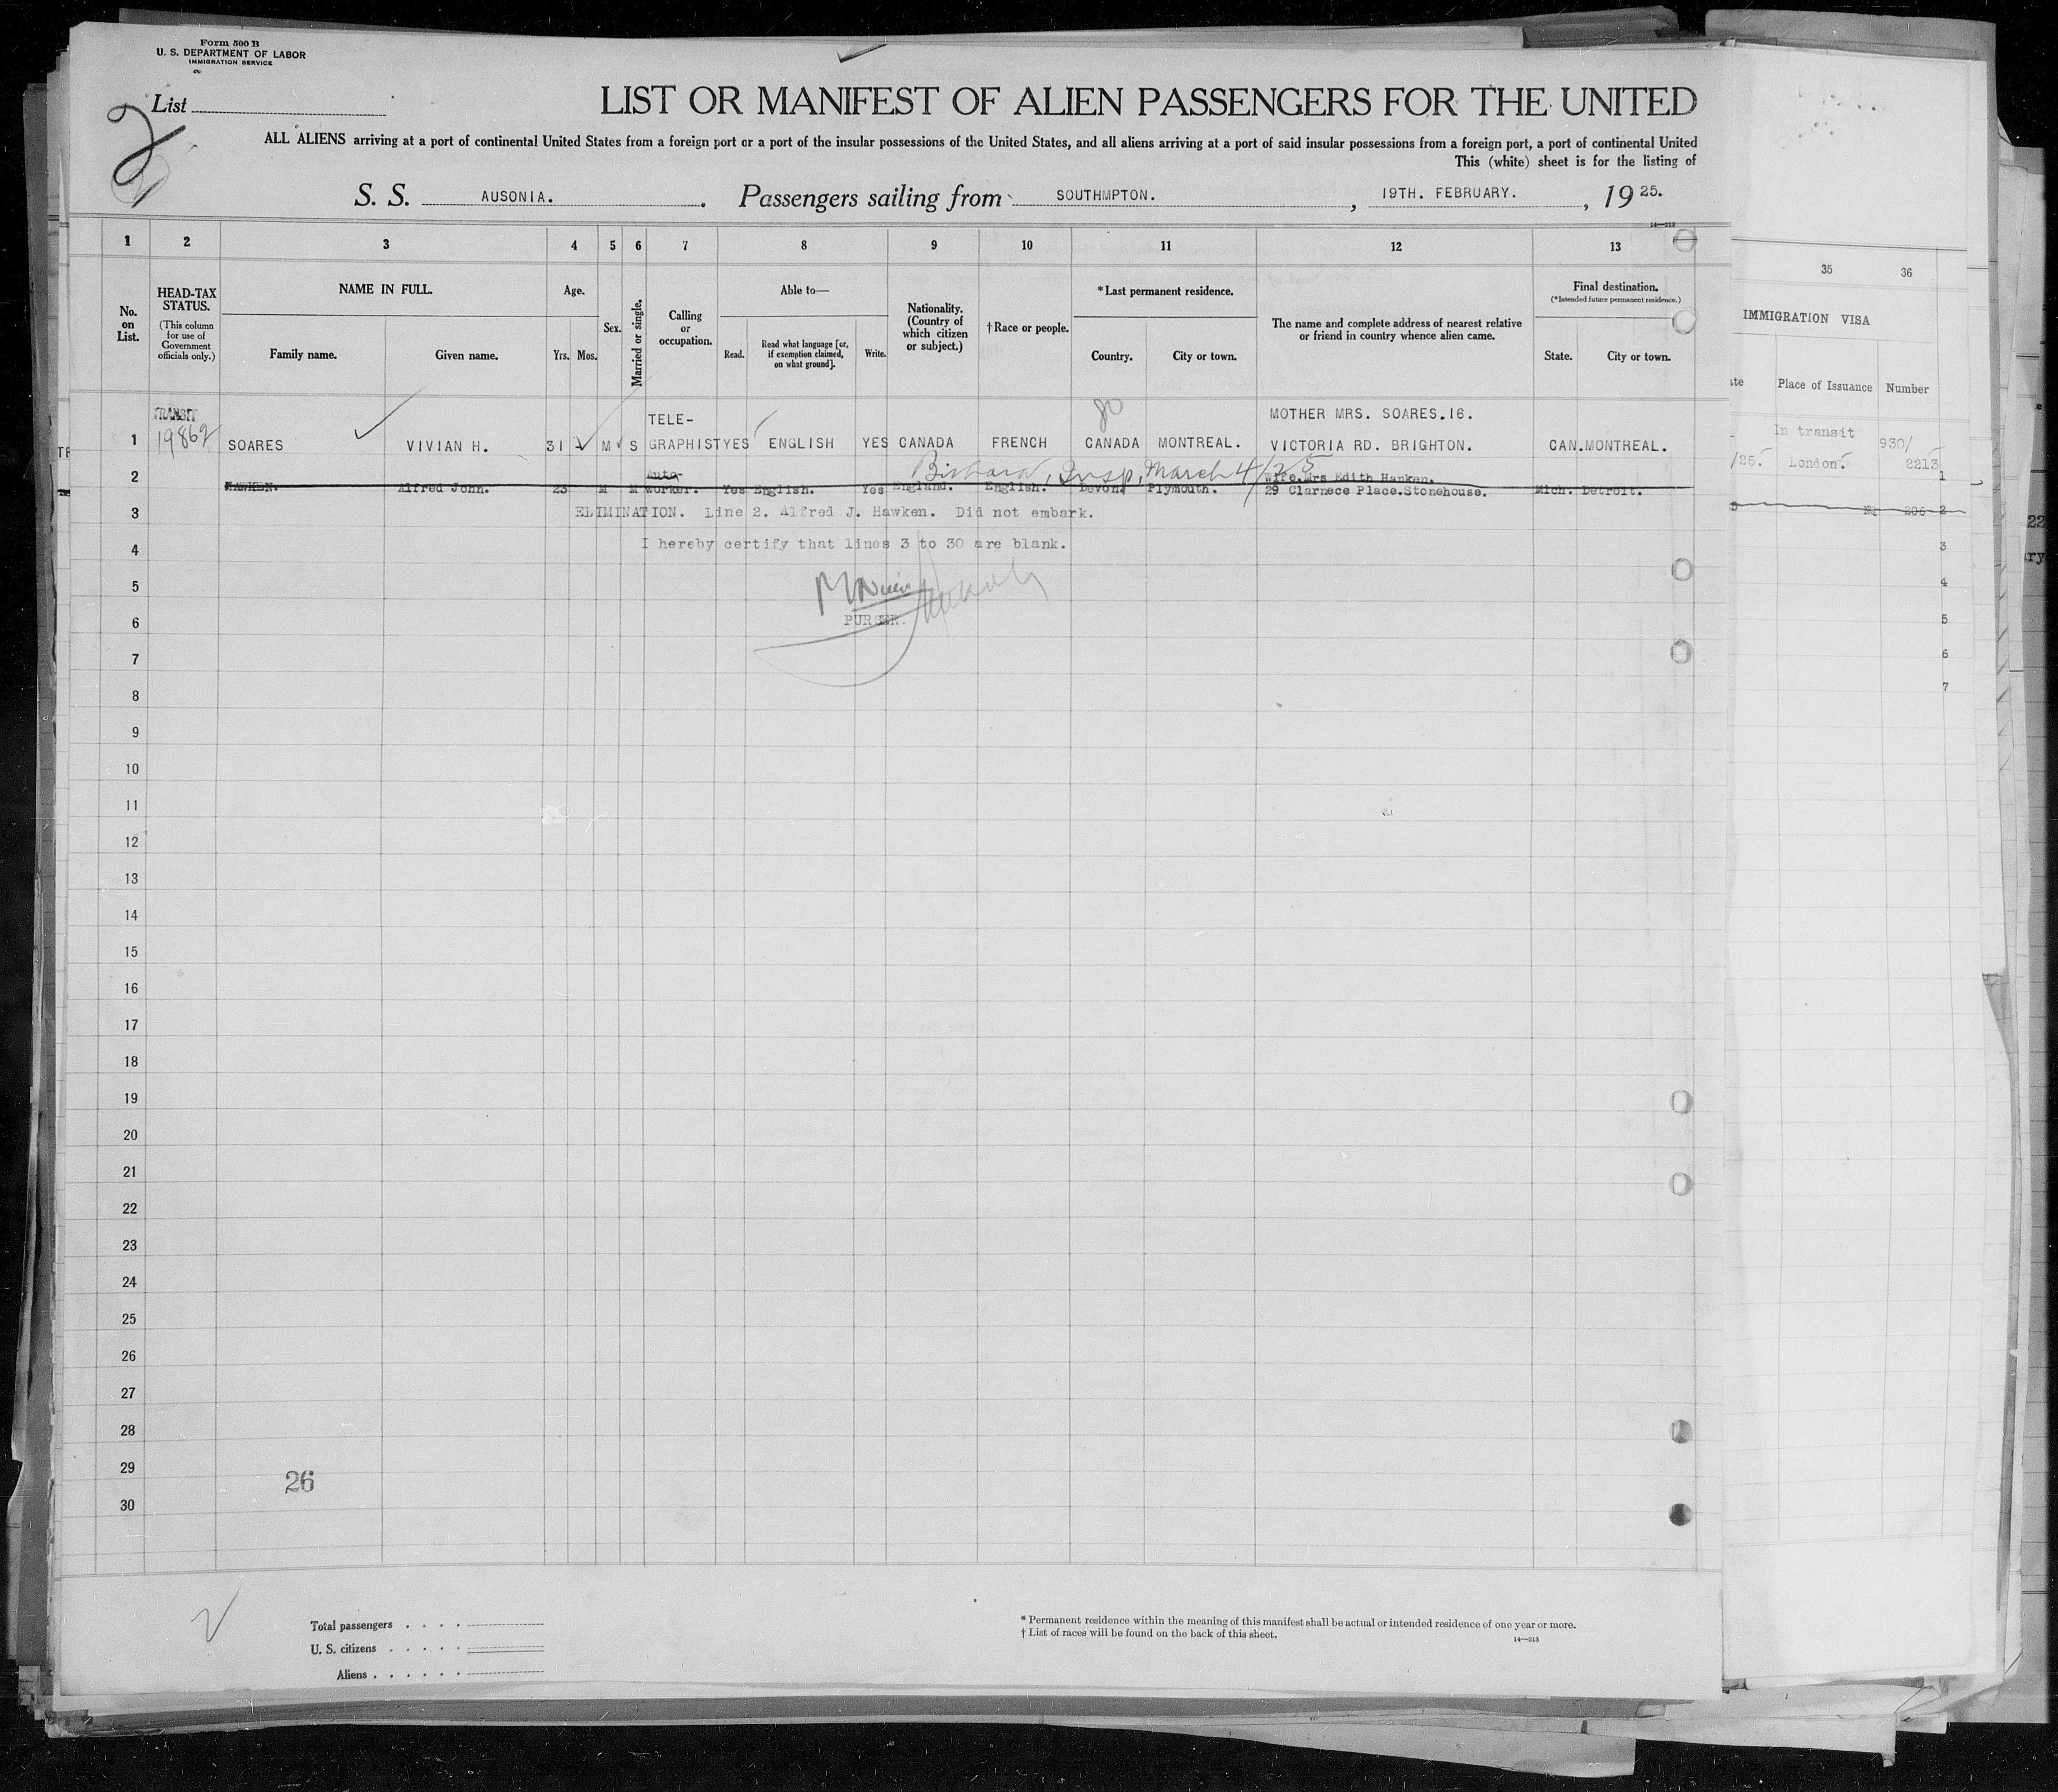 Form 500 B
U. S. DEPARTMENT OF LABOR
IMMIGRATION SERVICE
List
2
LIST OR MANIFEST OF ALIEN PASSENGERS FOR THE UNITED
ALL ALIENS arriving at a port of continental United States from a foreign port or a port of the insular possessions of the United States, and all aliens arriving at a port of said insular possessions from a foreign port, a port of continental United
This (white) sheet is for the listing of
S. S. AUSONIA. Passengers sailing from SOUTHMPTON. , 19TH. FEBRUARY. , 19 25.
14—213
1 2 3 4 5 6 7 8 9 10 11 12 13
35 36
No. on List.
HEAD-TAX STATUS.
(This column for use of Government officials only.)
NAME IN FULL.
Family name. Given name.
Age.
Yrs. Mos.
Sex.
Married or single.
Calling or occupation.
Able to—
Read. Read what language [or, if exemption claimed, on what ground]. Write.
Nationality. (Country of which citizen or subject.)
† Race or people.
* Last permanent residence.
Country. City or town.
The name and complete address of nearest relative or friend in country whence alien came.
Final destination.
(* Intended future permanent residence.)
State. City or town.
IMMIGRATION VISA
Place of Issuance Number
TRANSIT TELE- MOTHER MRS. SOARES.16.
1 19862 SOARES VIVIAN H. 31 M S GRAPHIST YES ENGLISH YES CANADA FRENCH CANADA MONTREAL. VICTORIA RD. BRIGHTON. CAN. MONTREAL.
In transit 930/
/25. London. 2213
Insp, March 4/25
Auto Wife.Mrs Edith Hanken.
2 HAWKEN. Alfred John. 23 M M worker. Yes English. Yes England. English. Devon. Plymouth. 29 Clarnece Place.Stonehouse. Mich. Detroit.
3 ELIMINATION. Line 2. Alfred J. Hawken. Did not embark.
4 I hereby certify that lines 3 to 30 are blank.
5
6 PURSER.
7
8
9
10
11
12
13
14
15
16
17
18
19
20
21
22
23
24
25
26
27
28
29
26
30
1
2
3
4
5
6
7
Total passengers
U. S. citizens
Aliens
* Permanent residence within the meaning of this manifest shall be actual or intended residence of one year or more.
† List of races will be found on the back of this sheet.
14—213